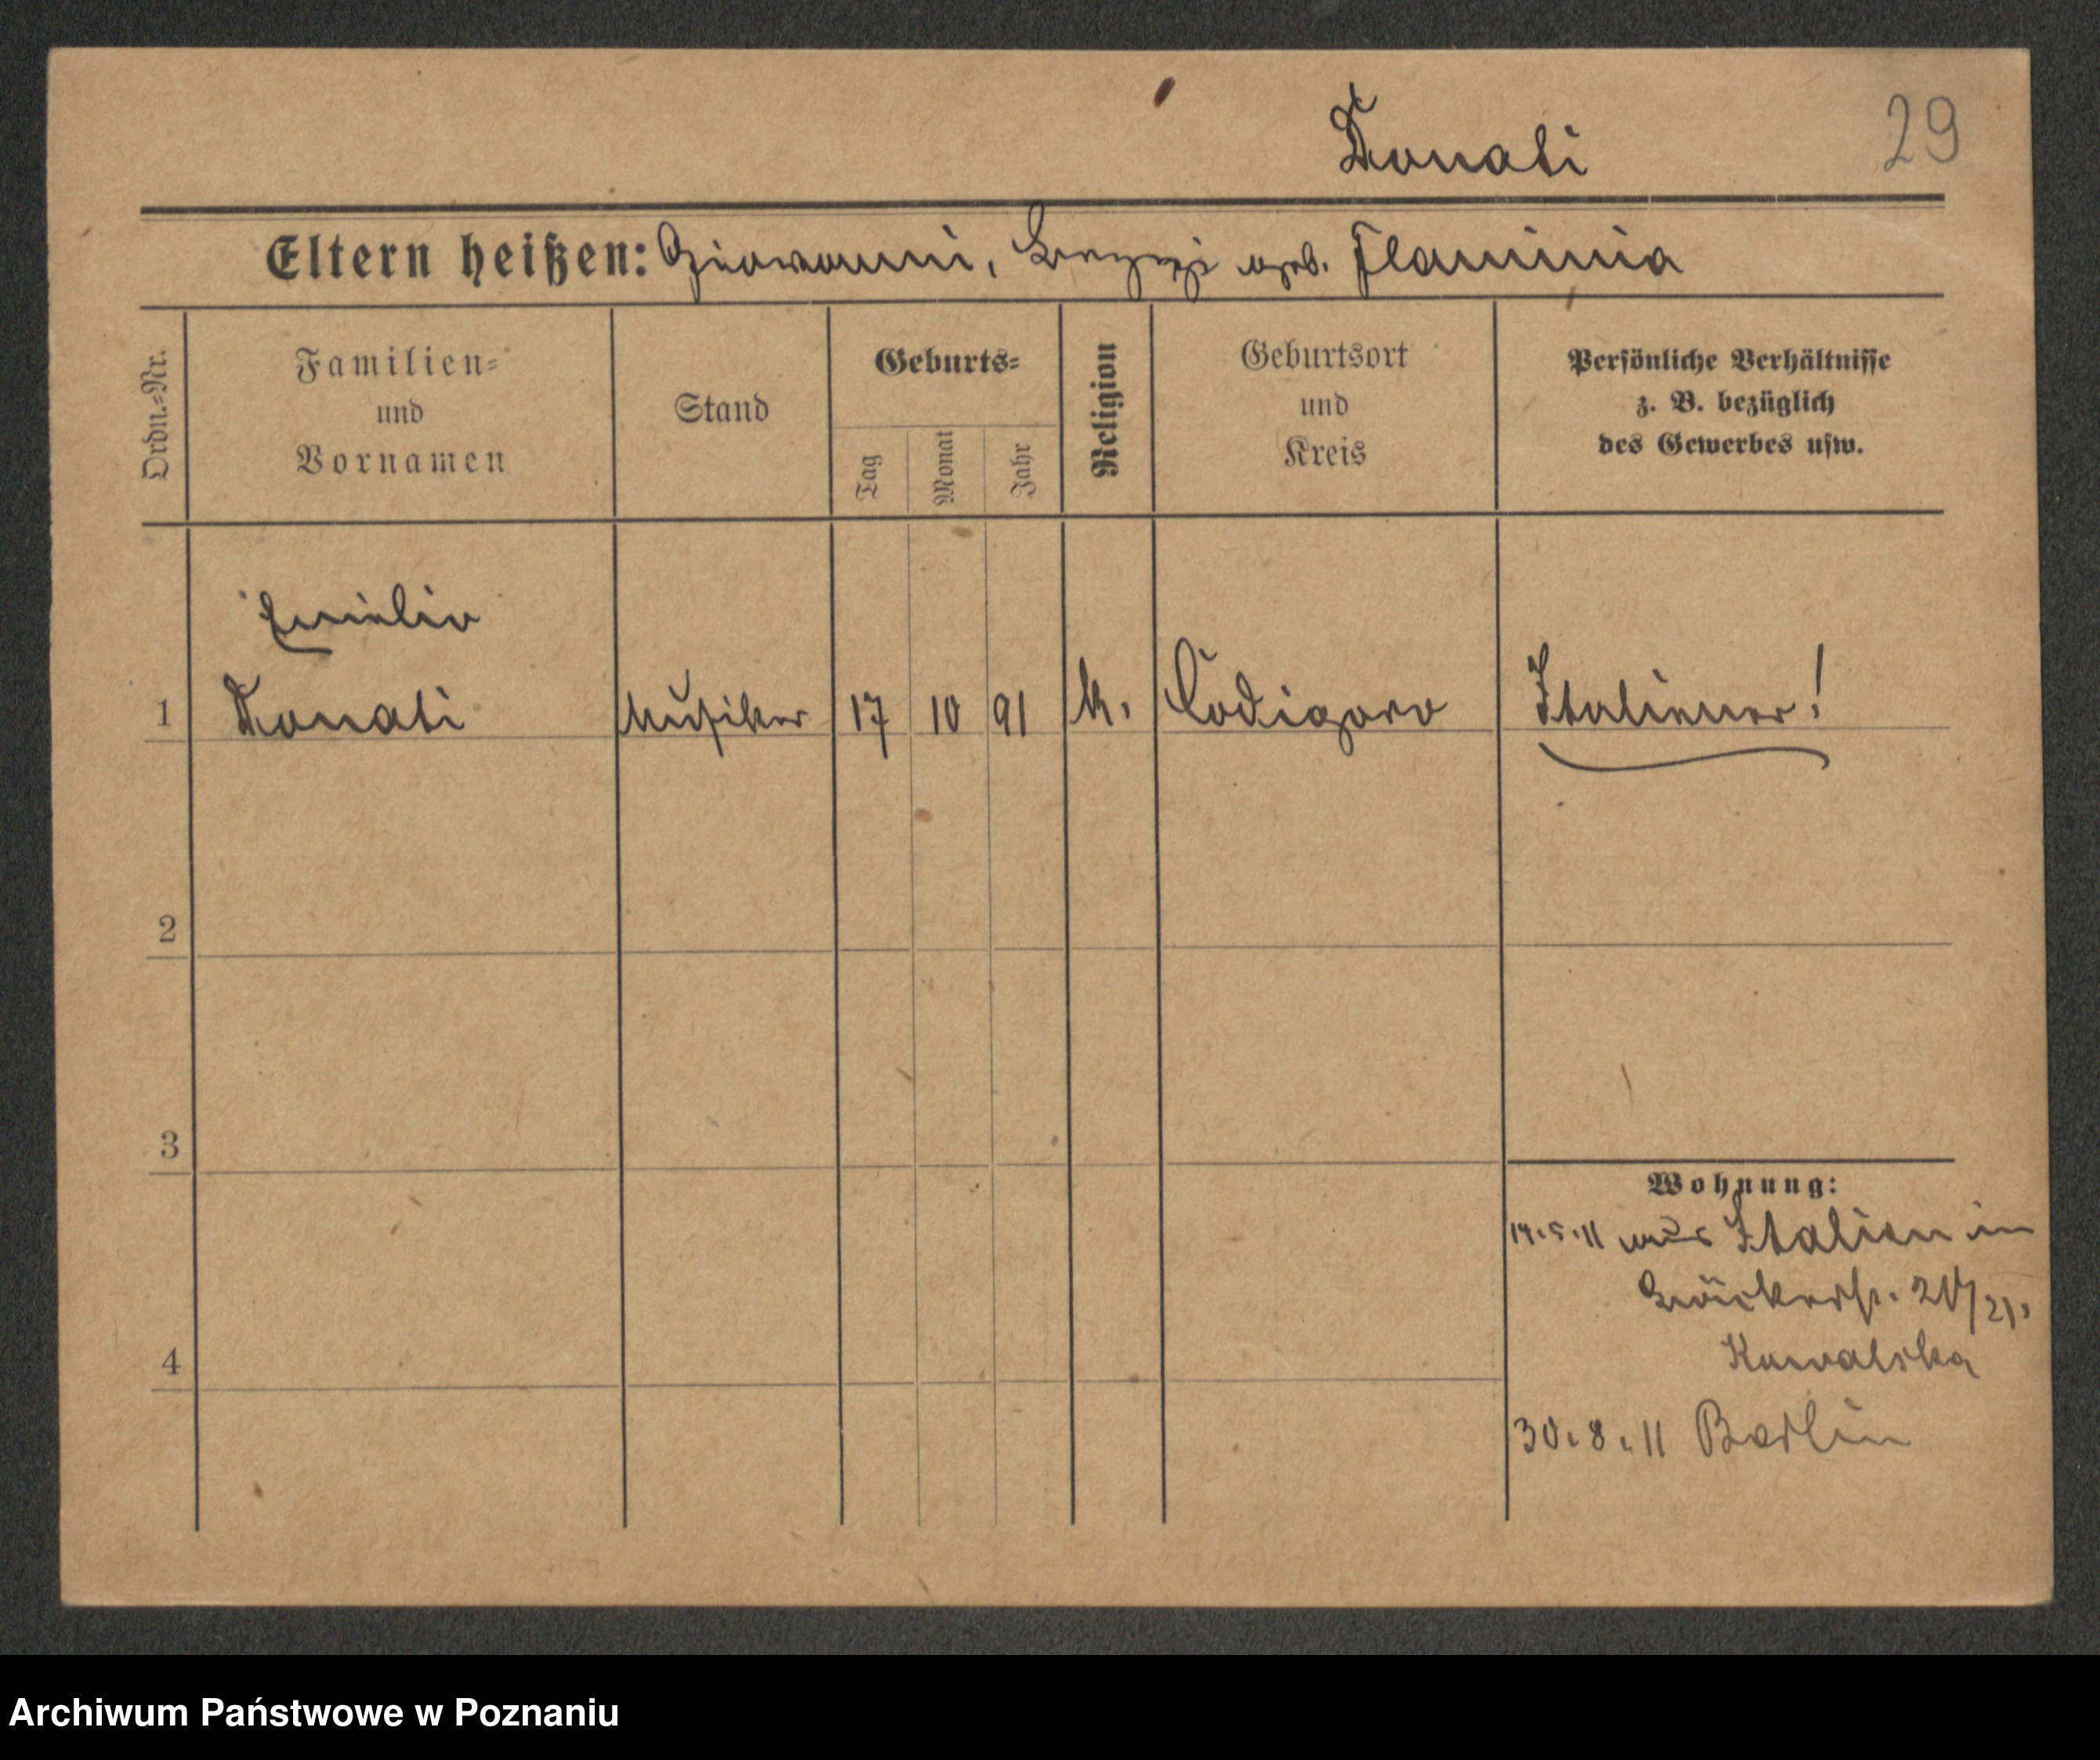 Donati
29
Eltern heißen: Giovanni, geb. Flaminia
Ordn.-Nr.
Familien-
und
Vornamen
Stand
Geburts-
Tag
Monat
Jahr
Religion
Geburtsort
und
Kreis
Persönliche Verhältnisse
z. B. bezüglich
des Gewerbes usw.
Emilio
1 Donati Musiker 17 10 91 k. Codigoro Italiener!
2
3
Wohnung:
14.5.11 aus Italien in
20/21.
Kowalska
4
30.8.11 Berlin
Archiwum Państwowe w Poznaniu